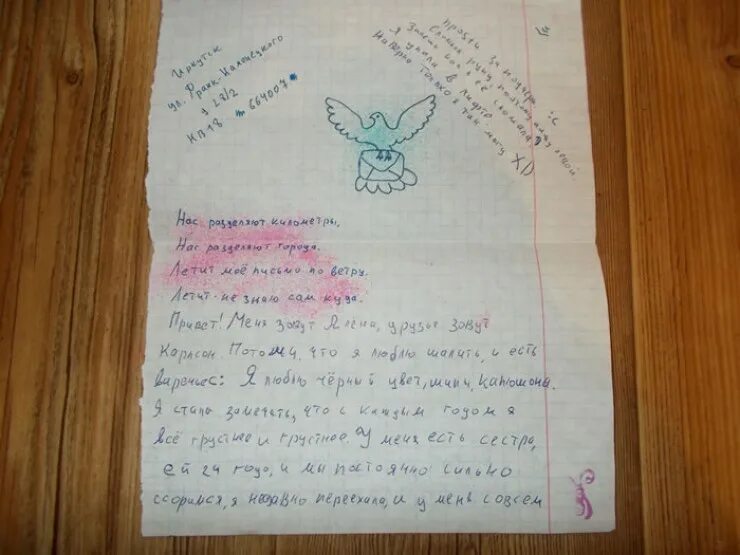 Иркутск
ул. Франк-Каменецкого
д 28/2
кв 18 664007
Прости за почерк :С
Сломала руку поэтому пишу левой.
Знаешь как я её сломала,
Я упала в лифте
Наверно только я так могу XD
Нас разделяют километры,
Нас разделяют города.
Летит моё письмо по ветру.
Летит не знаю сам куда.
Привет! Меня зовут Алёна, друзья зовут
Карлсон. Потому, что я люблю шалить, и есть
варенье с: Я люблю чёрный цвет, капюшоны.
Я стала замечать, что с каждым годом я
всё грустнее и грустнее. У меня есть сестра,
ей 24 года, и мы постоянно сильно
ссоримся, я недавно переехала, и у меня совсем